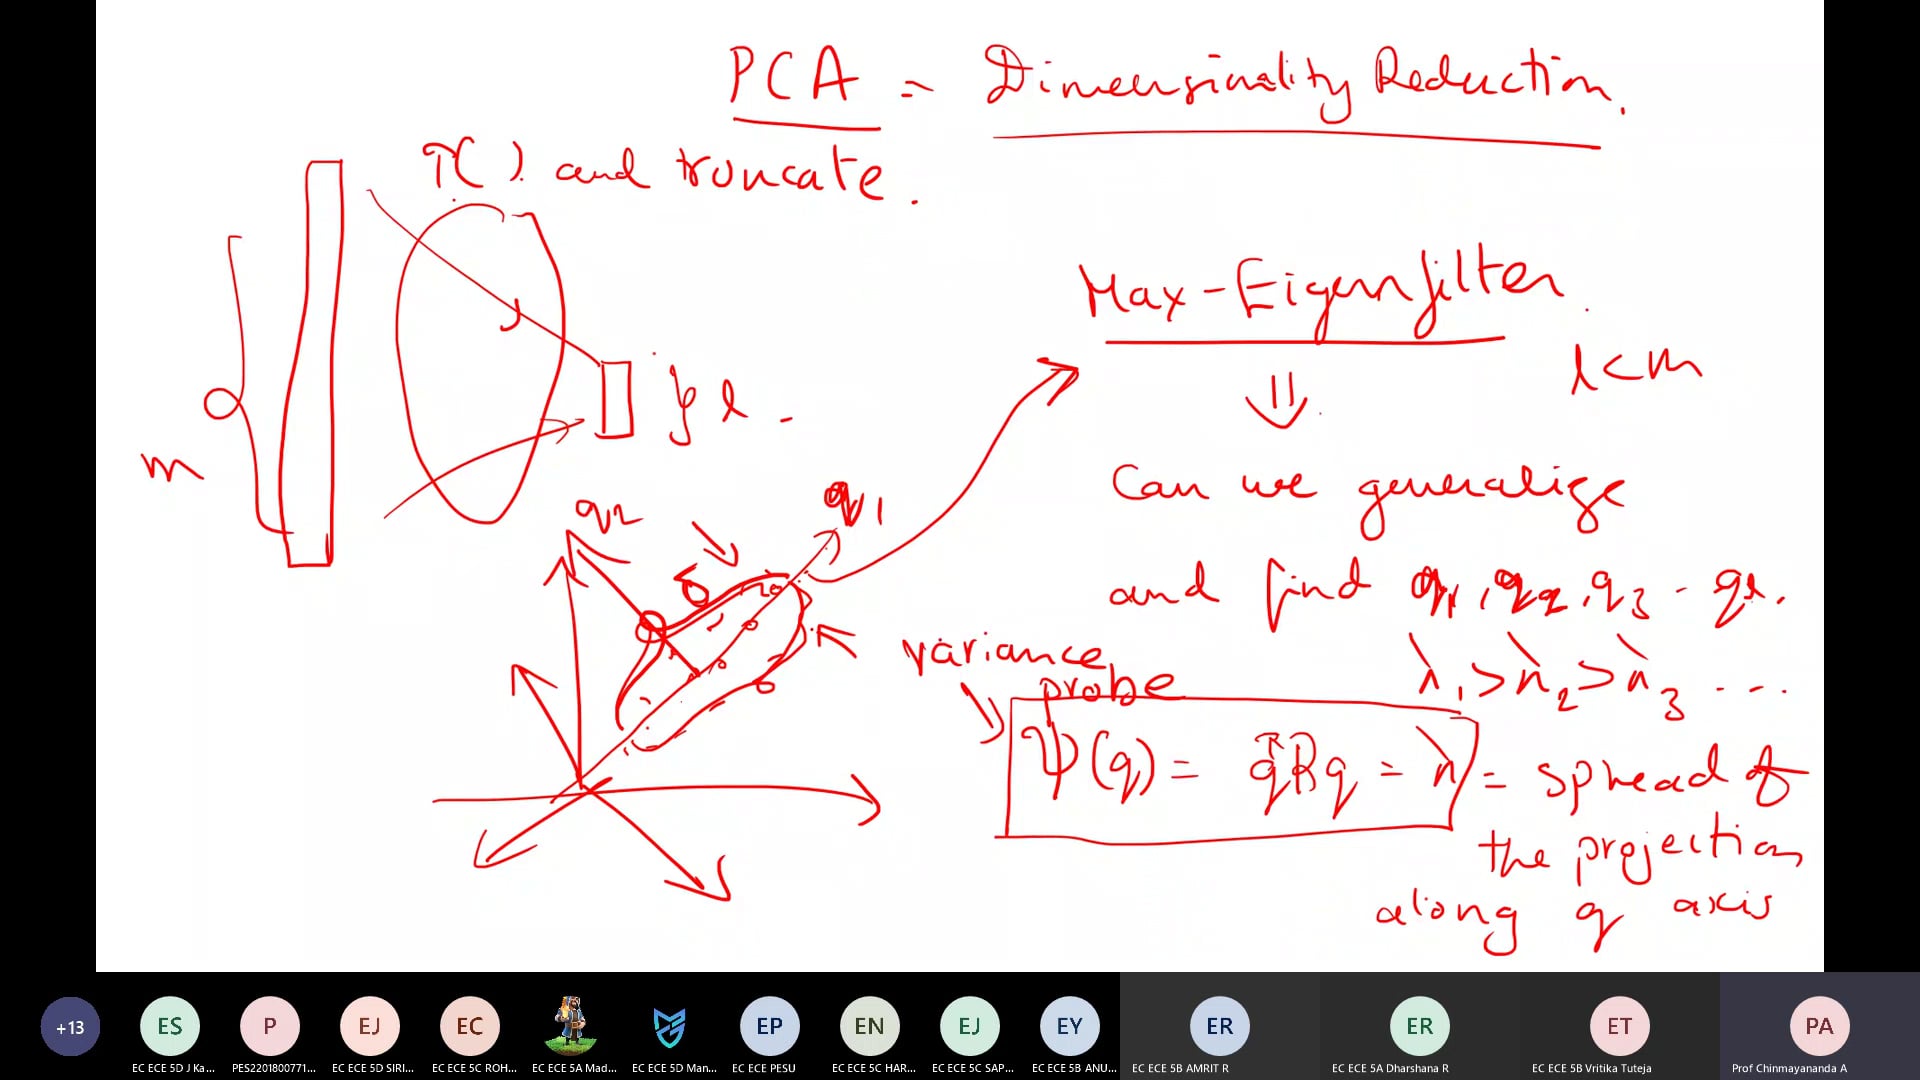 PCA = Dimensionality Reduction.
T( ) and truncate.
Max-Eigenfilter.
l<m
} l
m
Can we generalize
q2
q1
and find q1, q2, q3 - ql.
λ1 > λ2 > λ3 ...
variance
probe
Ψ(q) = qᵀRq = λ = spread of
the projection
along q axis
+13
ES
P
EJ
EC
EP
EN
EJ
EY
ER
ER
ET
PA
EC ECE 5D J Ka...
PES2201800771...
EC ECE 5D SIRI...
EC ECE 5C ROH...
EC ECE 5A Mad...
EC ECE 5D Man...
EC ECE PESU
EC ECE 5C HAR...
EC ECE 5C SAP...
EC ECE 5B ANU...
EC ECE 5B AMRIT R
EC ECE 5A Dharshana R
EC ECE 5B Vritika Tuteja
Prof Chinmayananda A